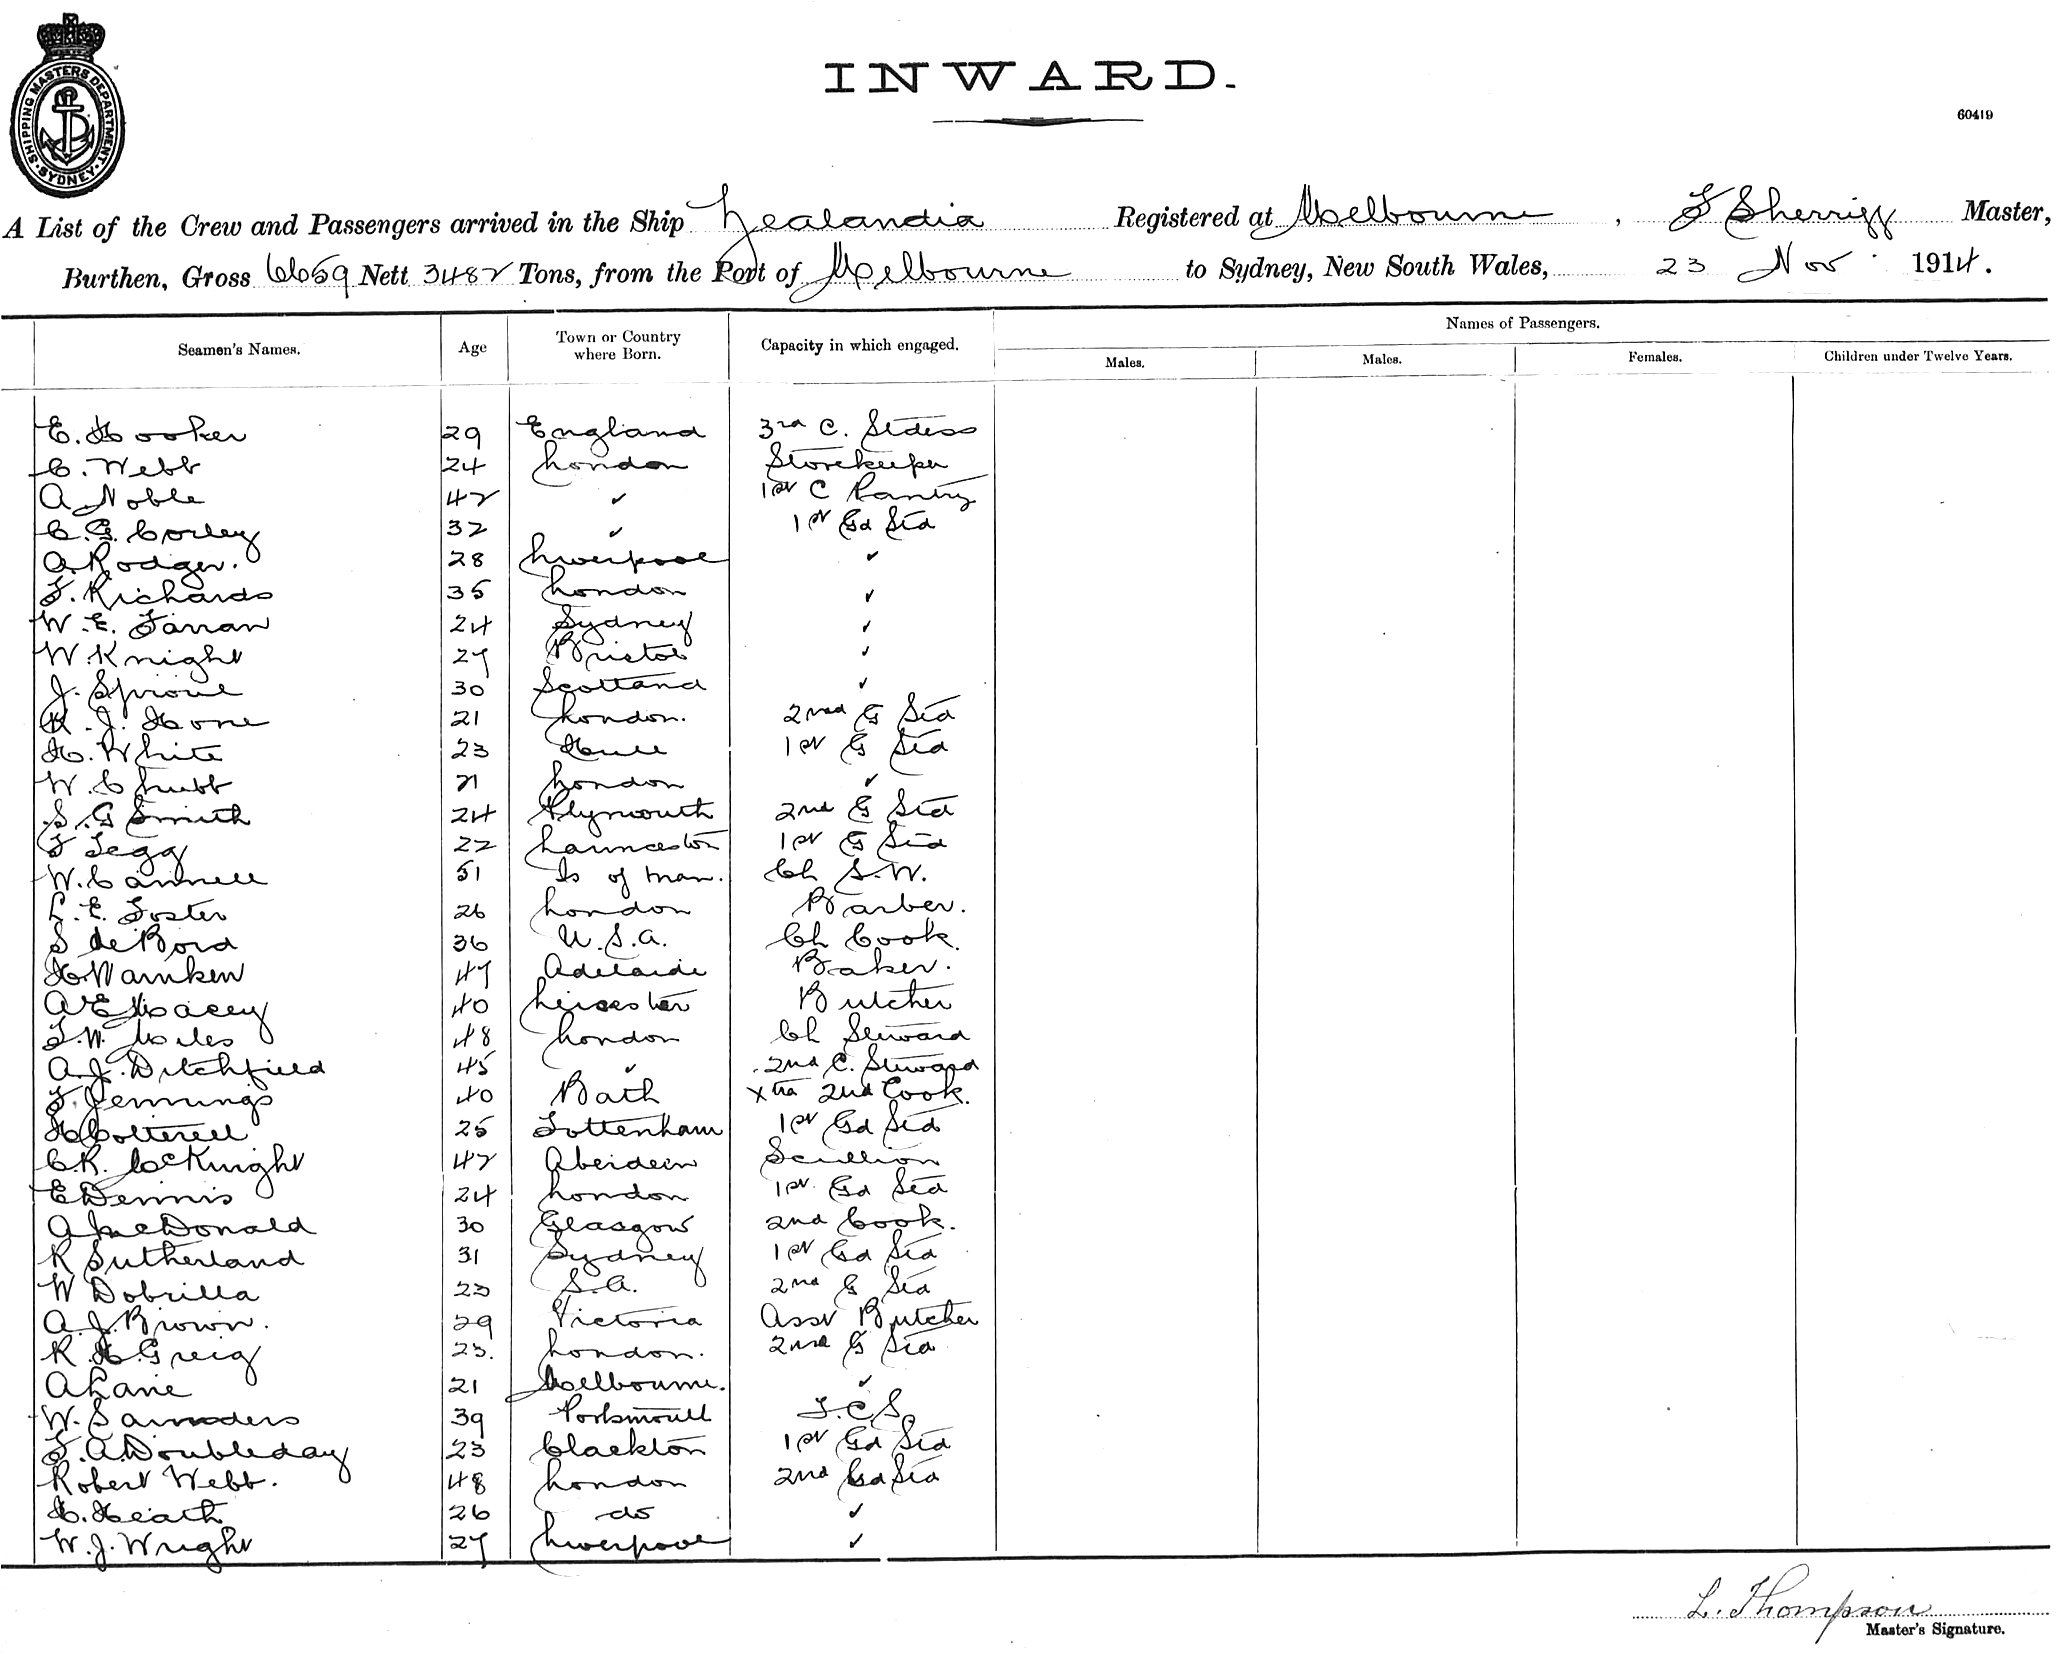 SHIPPING MASTERS DEPARTMENT. SYDNEY.
INWARD.
60419
A List of the Crew and Passengers arrived in the Ship Zealandia Registered at Melbourne, F Sherriff Master,
Burthen, Gross 6659 Nett 3482 Tons, from the Port of Melbourne to Sydney, New South Wales, 23 Nov 1914.
Names of Passengers.
Seamen's Names. Age Town or Country where Born. Capacity in which engaged. Males. Males. Females. Children under Twelve Years.
E. Hooker 29 England 3rd C. Stdess
C. Webb 24 London Storekeeper
A Noble 42 " 1st C Pantry
C. G. Corley 32 " 1st Gd Std
A. Rodger. 28 Liverpool "
F. Richards 35 London "
W. E. Farran 24 Sydney "
W. Knight 27 Bristol "
J. Sproul 30 Scotland "
R. J. Hone 21 London. 2nd G Std
H. White 23 Hull 1st G Std
W. Chubb 21 London "
S. G Smith 24 Plymouth 2nd G Std
F Tegg 22 Launceston 1st G Std
W. Cannell 51 Is of Man. Ch S.W.
L. E. Foster 26 London Barber.
S de Bord 36 U.S.A. Ch Cook.
H. Warnken 47 Adelaide Baker.
A E Macey 40 Leicester Butcher
F. W. Miles 48 London Ch Steward
A. J. Ditchfield 45 " 2nd C. Steward
F. Jennings 40 Bath Xtra 2nd Cook.
H Cotterell 25 Tottenham 1st Gd Std
C. R. McKnight 42 Aberdeen Scullion
E Dennis 24 London 1st Gd Std
A McDonald 30 Glasgow 2nd Cook.
R Sutherland 31 Sydney 1st Gd Std
W Dobrilla 23 S.A. 2nd G Std
A. J. Brown. 29 Victoria Asst Butcher
R. H. Greig 23. London. 2nd G Std
A Lane 21 Melbourne. "
W. Saunders 39 Portsmouth T.C.S.
F. A. Doubleday 23 Clackton 1st Gd Std
Robert Webb. 48 London 2nd Gd Std
H. Heath 26 do "
W. J. Wright 27 Liverpool "
L. Thompson
Master's Signature.